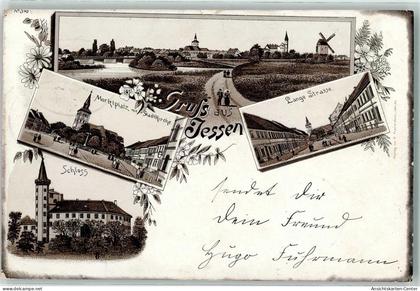 Gruß aus Jessen
Marktplatz mit Stadtkirche
Lange Strasse
Schloss
sendet Dir
Dein Freund
Hugo Fuhrmann
Ansichtskarten-Center